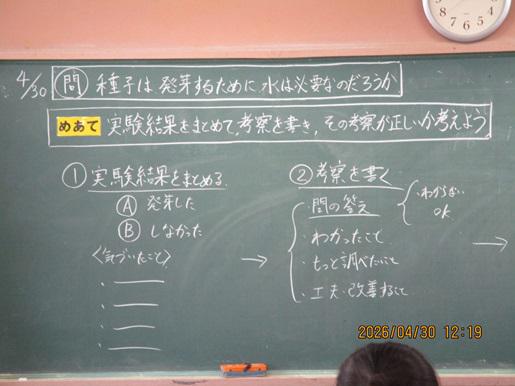 4/30 問 種子は発芽するために水は必要なのだろうか
めあて 実験結果をまとめて、考察を書き、その考察が正しいか考えよう
① 実験結果をまとめる。
Ⓐ 発芽した
Ⓑ しなかった
〈気づいたこと〉
・
・
・
・
→
② 考察を書く
・問の答え
・わからない
OK
・わかったこと
・もっと調べたいこと
・工夫・改善すること
→
2026/04/30 12:19